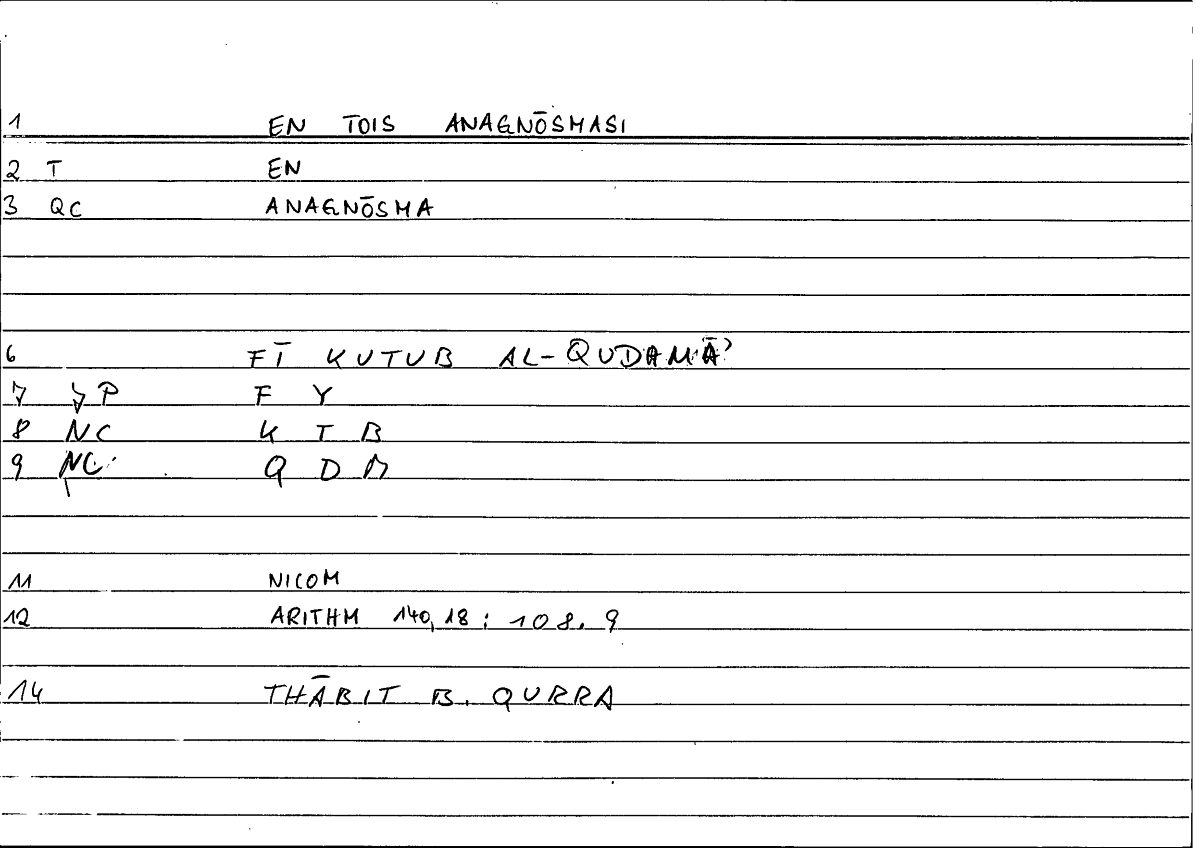 1 EN TOIS ANAGNŌSMASI
2 T EN
3 QC ANAGNŌSMA
6 FĪ KUTUB AL-QUDAMĀʾ
7 P F Y
8 NC K T B
9 NC Q D M
11 NICOM
12 ARITHM 140,18 : 108.9
14 THĀBIT B. QURRA